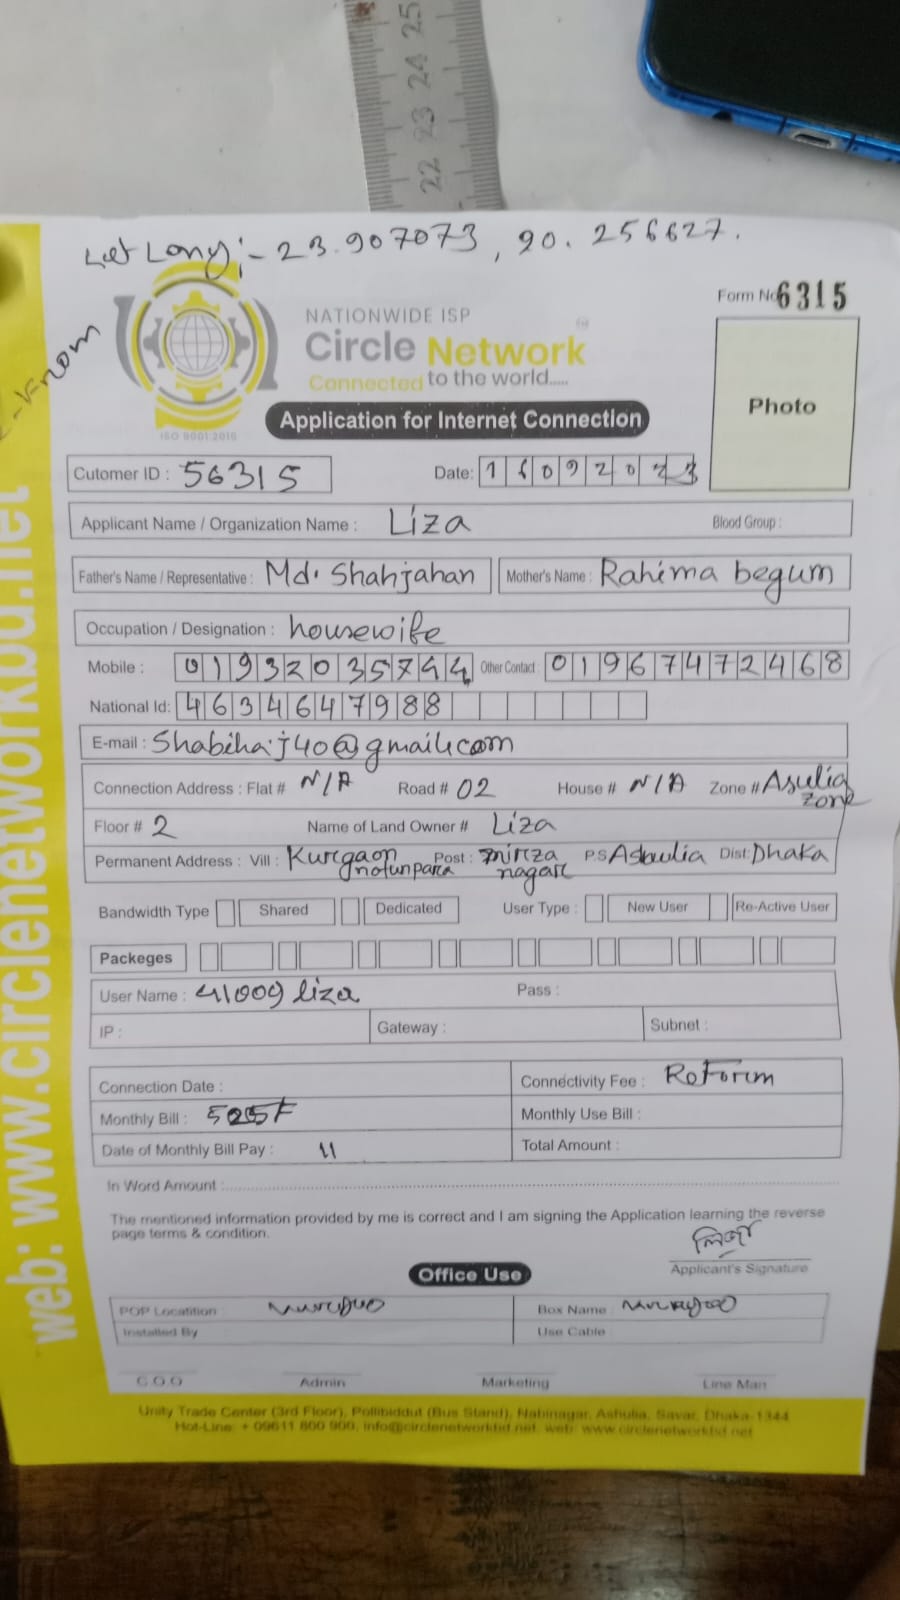 22 23 24 25
Let Long;- 23.907073, 90.256627.
Form No 6315
NATIONWIDE ISP
Circle Network
Connected to the world.....
ISO 9001:2015
Photo
Application for Internet Connection
Cutomer ID : 56315 Date: 16092023
Applicant Name / Organization Name : Liza Blood Group :
Father's Name / Representative : Md. Shahjahan Mother's Name : Rahima begum
Occupation / Designation : housewife
Mobile : 01932035744 Other Contact : 01967472468
National Id: 4634647988
E-mail :
Connection Address : Flat # N/A Road # 02 House # N/A Zone # Asulia zone
Floor # 2 Name of Land Owner # Liza
Permanent Address : Vill : Kurgaon notunpara Post : mirza nagar P.S Ashulia Dist: Dhaka
Bandwidth Type Shared Dedicated User Type : New User Re-Active User
Packeges
User Name : 41009 liza Pass :
IP : Gateway : Subnet :
Connection Date : Connectivity Fee : ReForm
Monthly Bill : Monthly Use Bill :
Date of Monthly Bill Pay : 11 Total Amount :
In Word Amount :
The mentioned information provided by me is correct and I am signing the Application learning the reverse
page terms & condition.
লিজা
Applicant's Signature
Office Use
POP Locatition : Box Name :
Installed By Use Cable
C.O.O Admin Marketing Line Man
Unity Trade Center (3rd Floor), Pollibiddut (Bus Stand), Nabinagar, Ashulia, Savar, Dhaka-1344
Hot-Line: + 09611 800 900, info@circlenetworkbd.net, web: www.circlenetworkbd.net
web: www.circlenetworkbd.net